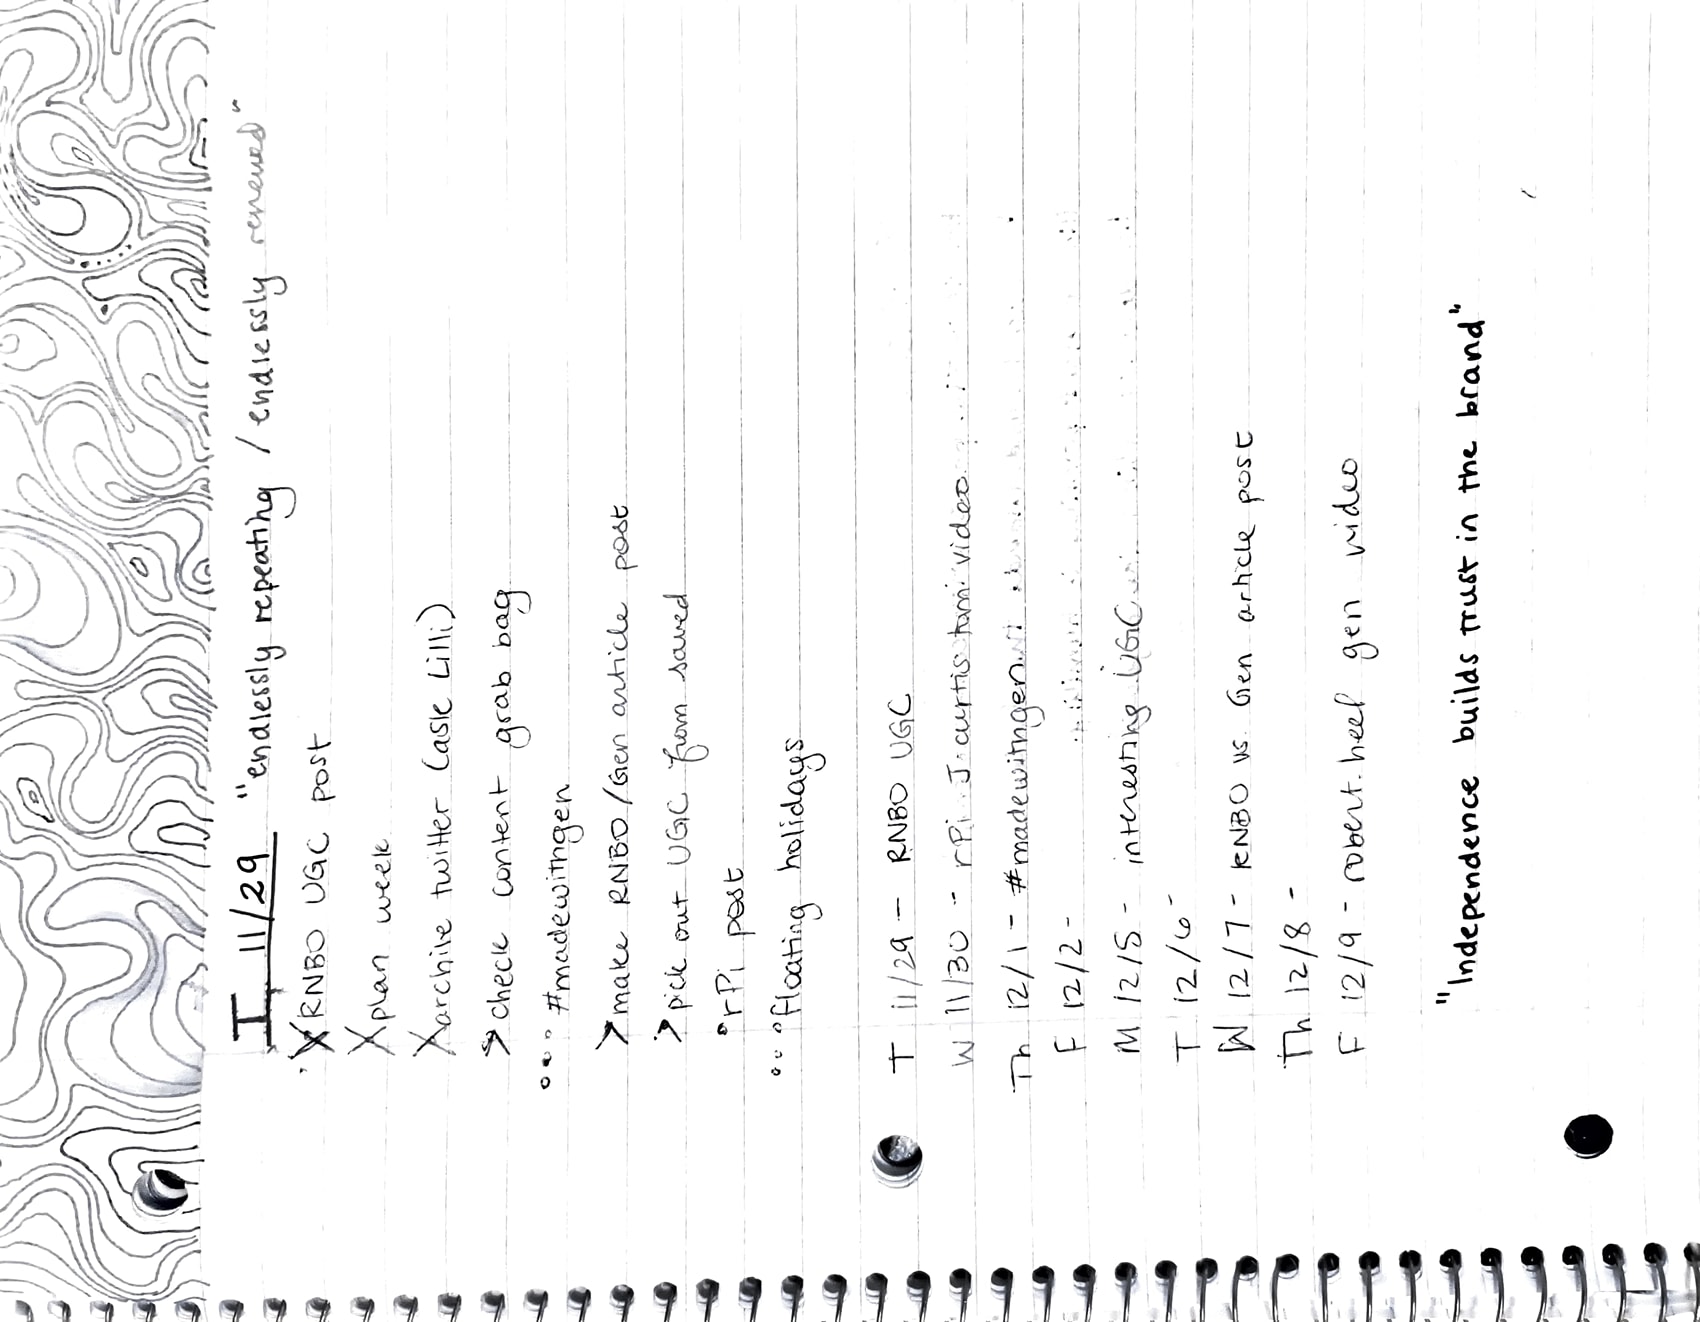 T 11/29 "endlessly repeating / endlessly renewed"
X RNBO UGC post
X plan week
X archive twitter (ask Lilli)
> check content grab bag
°°° #madewithgen
> make RNBO/Gen article post
> pick out UGC from saved
° rPi post
°°° floating holidays
T 11/29 - RNBO UGC
W 11/30 - rPi J. curtis tomi video
Th 12/1 - #madewithgen
F 12/2 -
M 12/5 - interesting UGC
T 12/6 -
W 12/7 - RNBO vs. Gen article post
Th 12/8 -
F 12/9 - robert.heel gen video
"Independence builds trust in the brand"